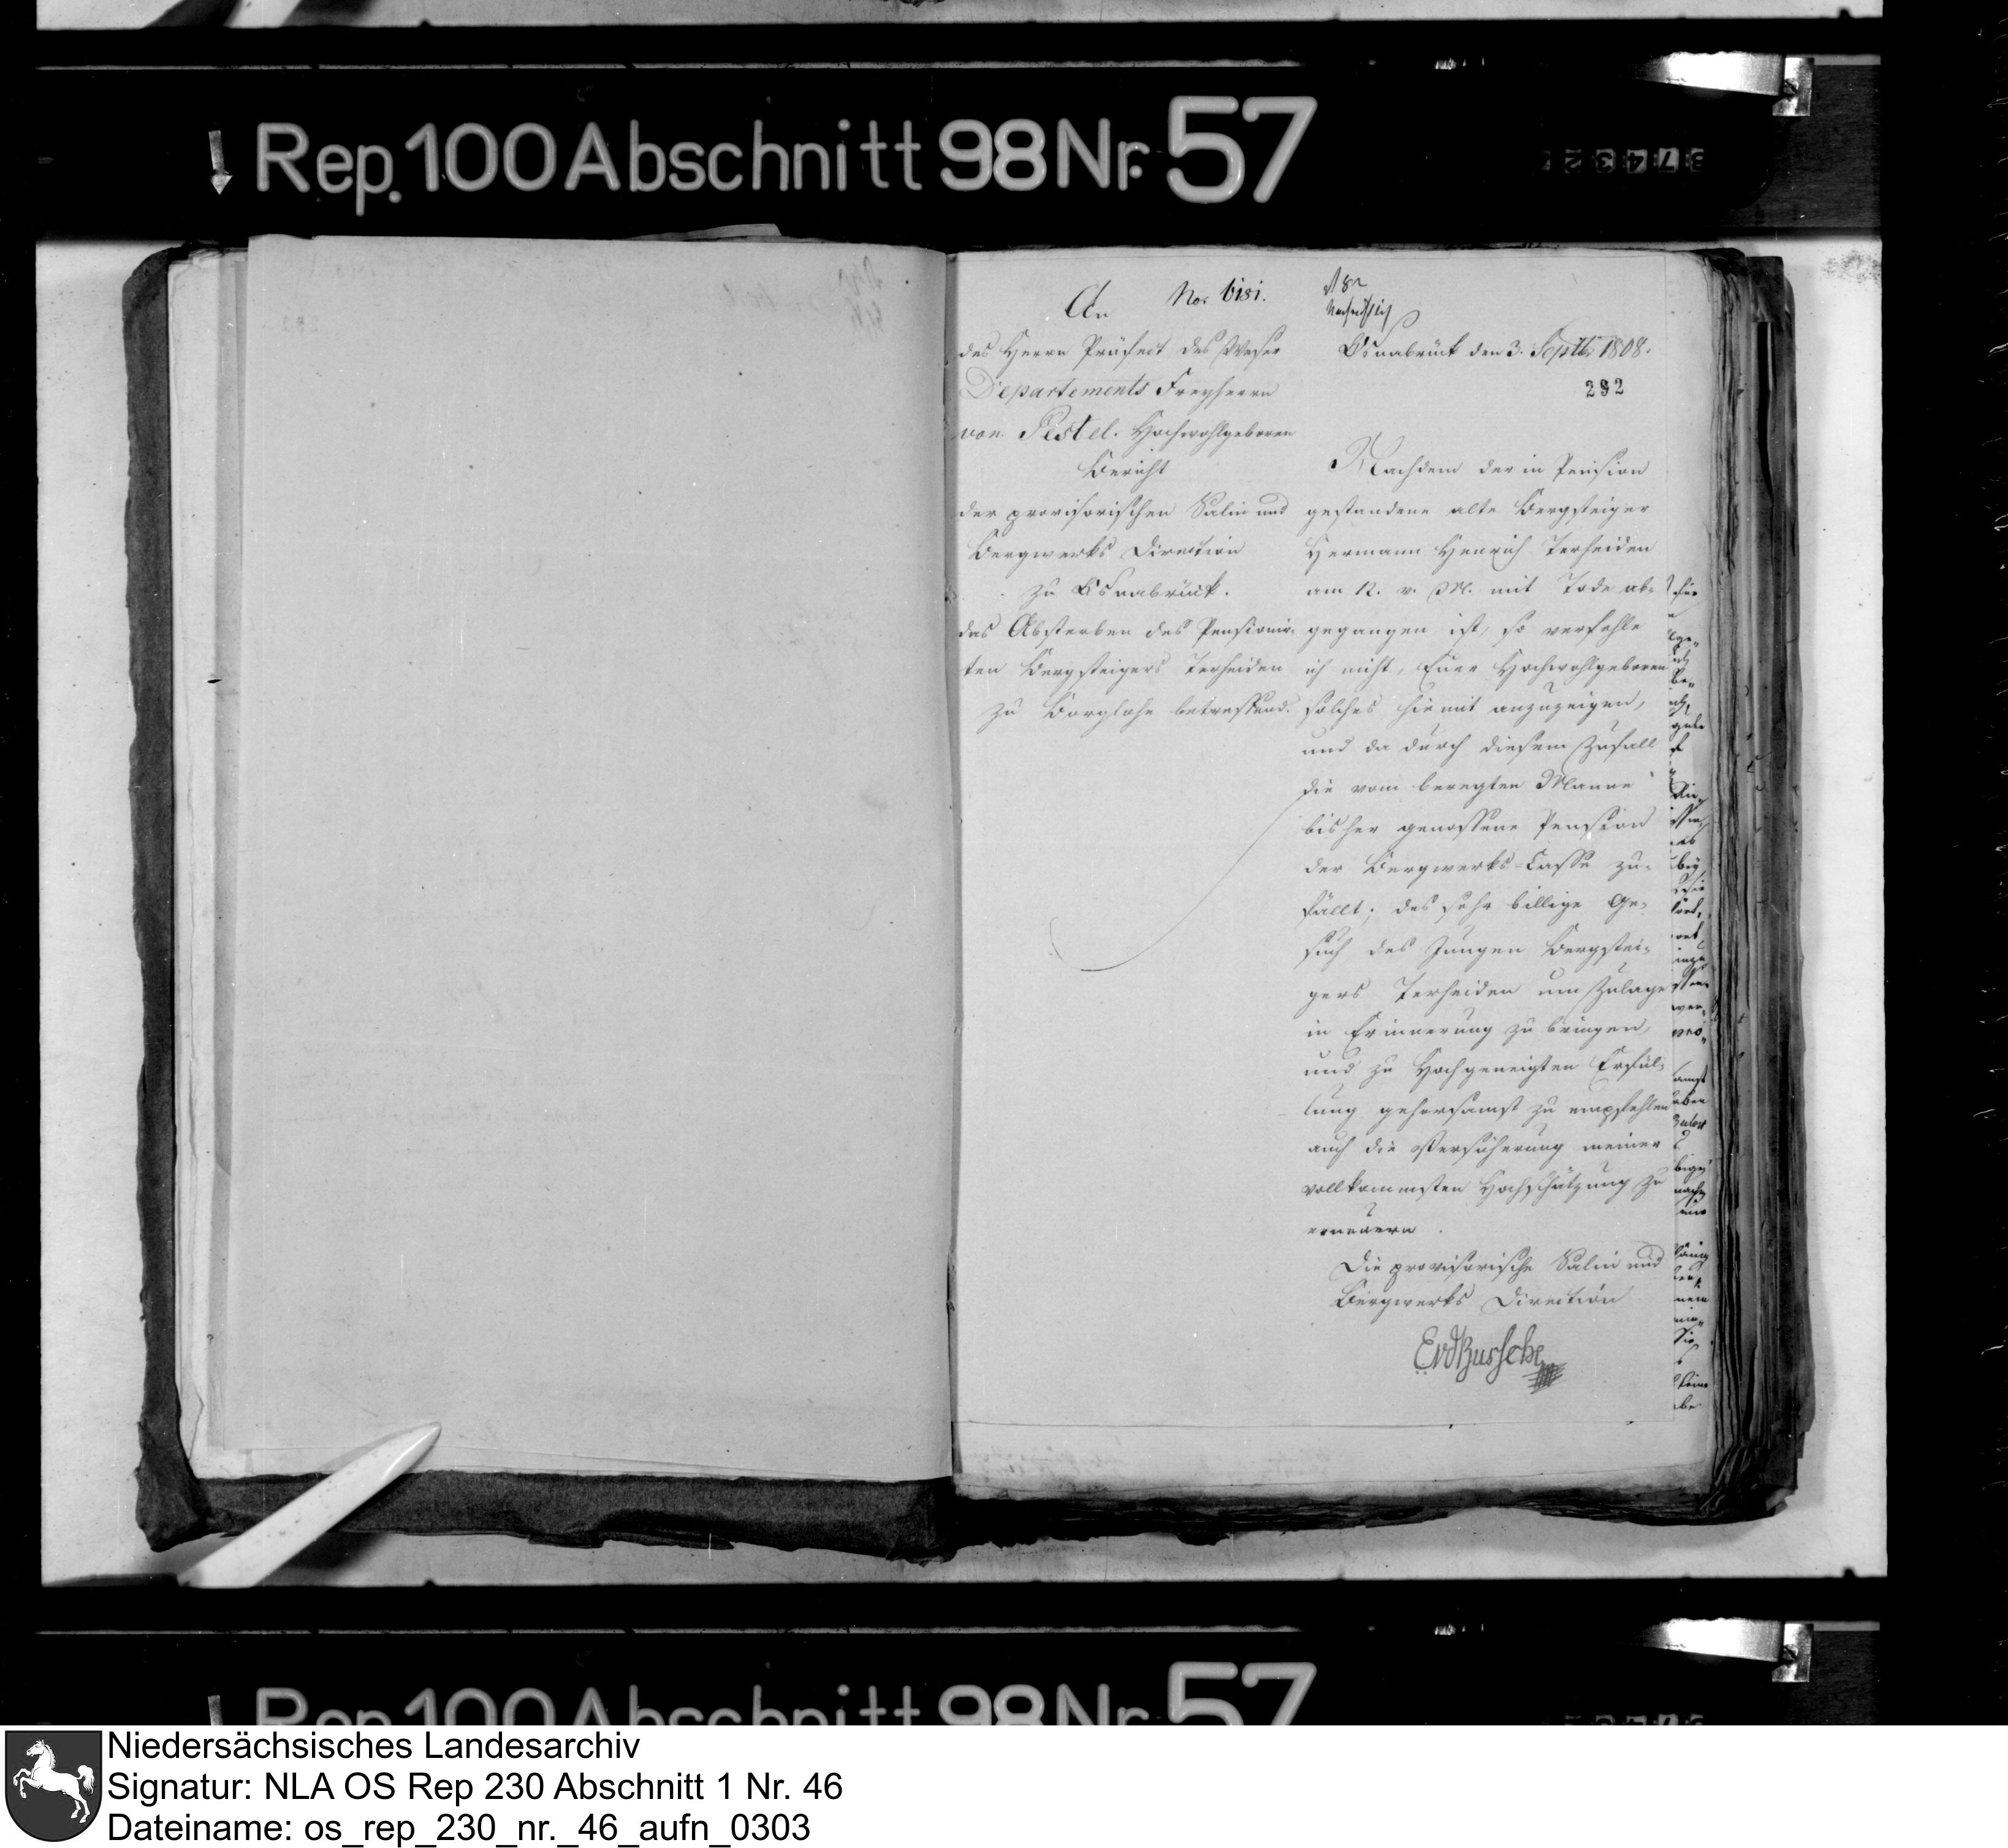 Rep. 100 Abschnitt 98 Nr. 57
An
No. 6181.
des Herrn Präfect des Weser
Departements Freyherrn
von Pestel. Hochwohlgeboren
Bericht
der provisorischen Salin und
Bergwerks Direction
zu Osnabrück.
das Absterben des Pensionir-
ten Bergsteigers Terheiden
zu Borglohe betreffend.
Osnabrück den 3. Septbr 1808.
292
Nachdem der in Pension
gestandene alte Bergsteiger
Hermann Henrich Terheiden
am 12. v. M. mit Tode ab-
gegangen ist, so verfehle
ich nicht, Euer Hochwohlgeboren
solches hiemit anzuzeigen,
und da durch diesem Zufall
die vom beregten Manne
bisher genossene Pension
der Bergwerks-Casse zu-
fällt; das sehr billige Ge-
such des Jungen Bergstei-
gers Terheiden um Zulage
in Erinnerung zu bringen,
und zu Hochgeneigten Erfül-
lung gehorsamst zu empfehlen
auch die Versicherung meiner
vollkommsten Hochschätzung zu
erneuern.
Die provisorische Salin und
Bergwerks Direction
EvdBussche
Rep. 100 Abschnitt 98 Nr. 57
Niedersächsisches Landesarchiv
Signatur: NLA OS Rep 230 Abschnitt 1 Nr. 46
Dateiname: os_rep_230_nr._46_aufn_0303